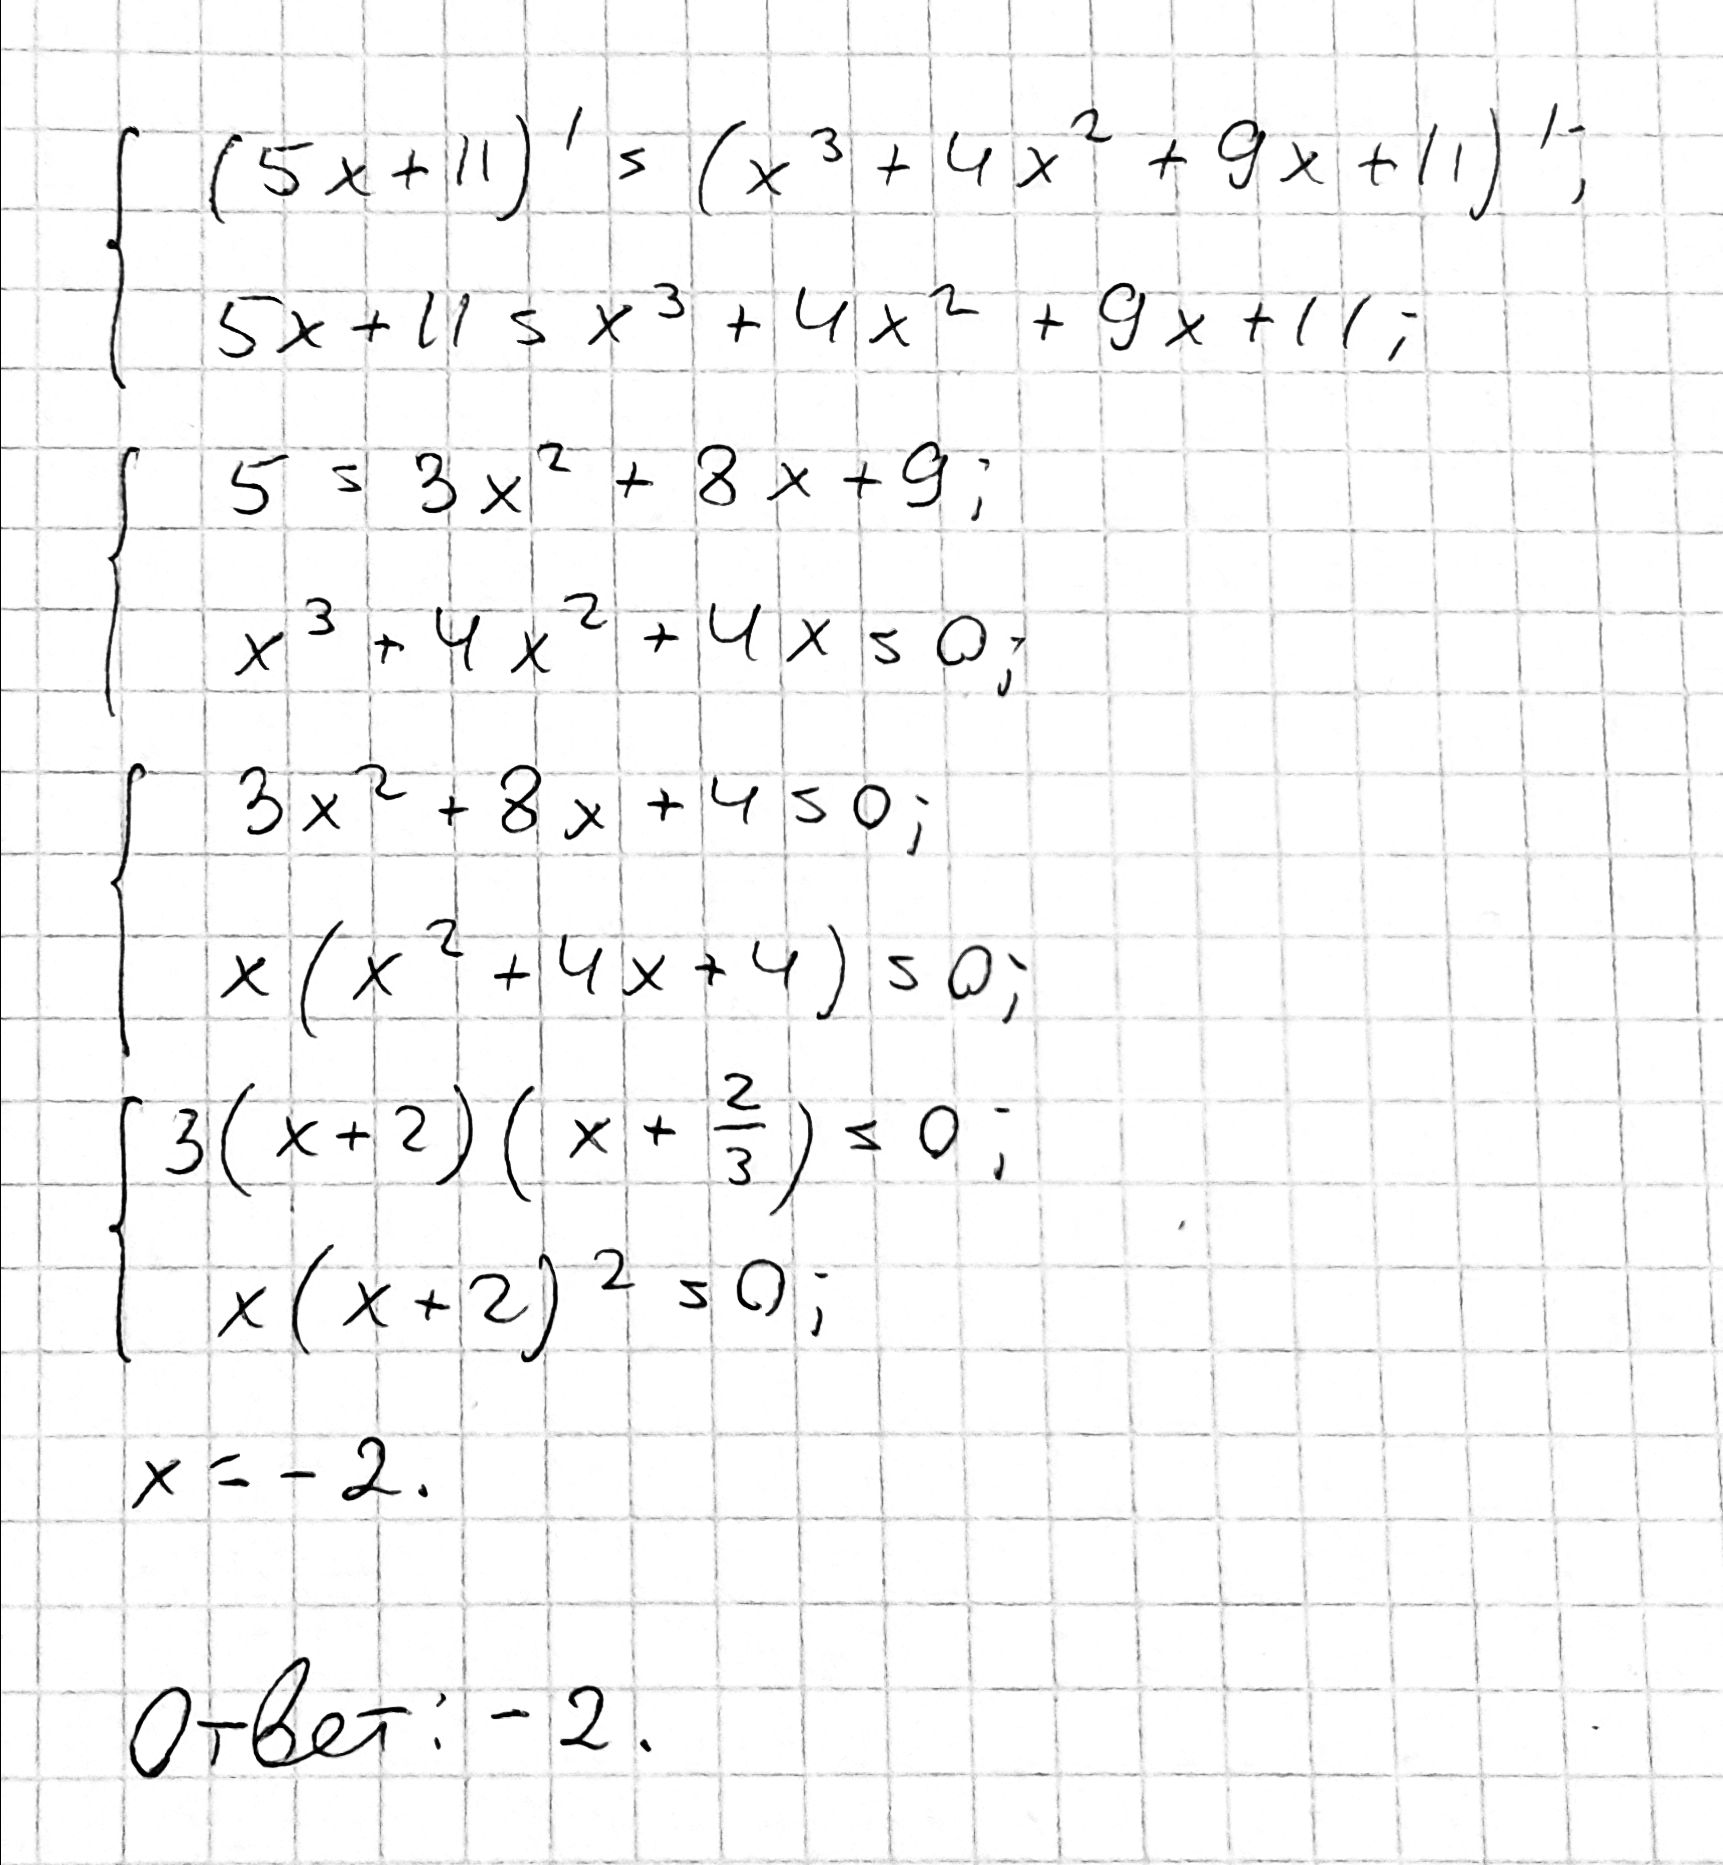 (5x+11)' = (x³ + 4x² + 9x + 11)';
5x + 11 = x³ + 4x² + 9x + 11;
5 = 3x² + 8x + 9;
x³ + 4x² + 4x = 0;
3x² + 8x + 4 = 0;
x(x² + 4x + 4) = 0;
3(x+2)(x + 2/3) = 0;
x(x+2)² = 0;
x = -2.
Ответ: -2.